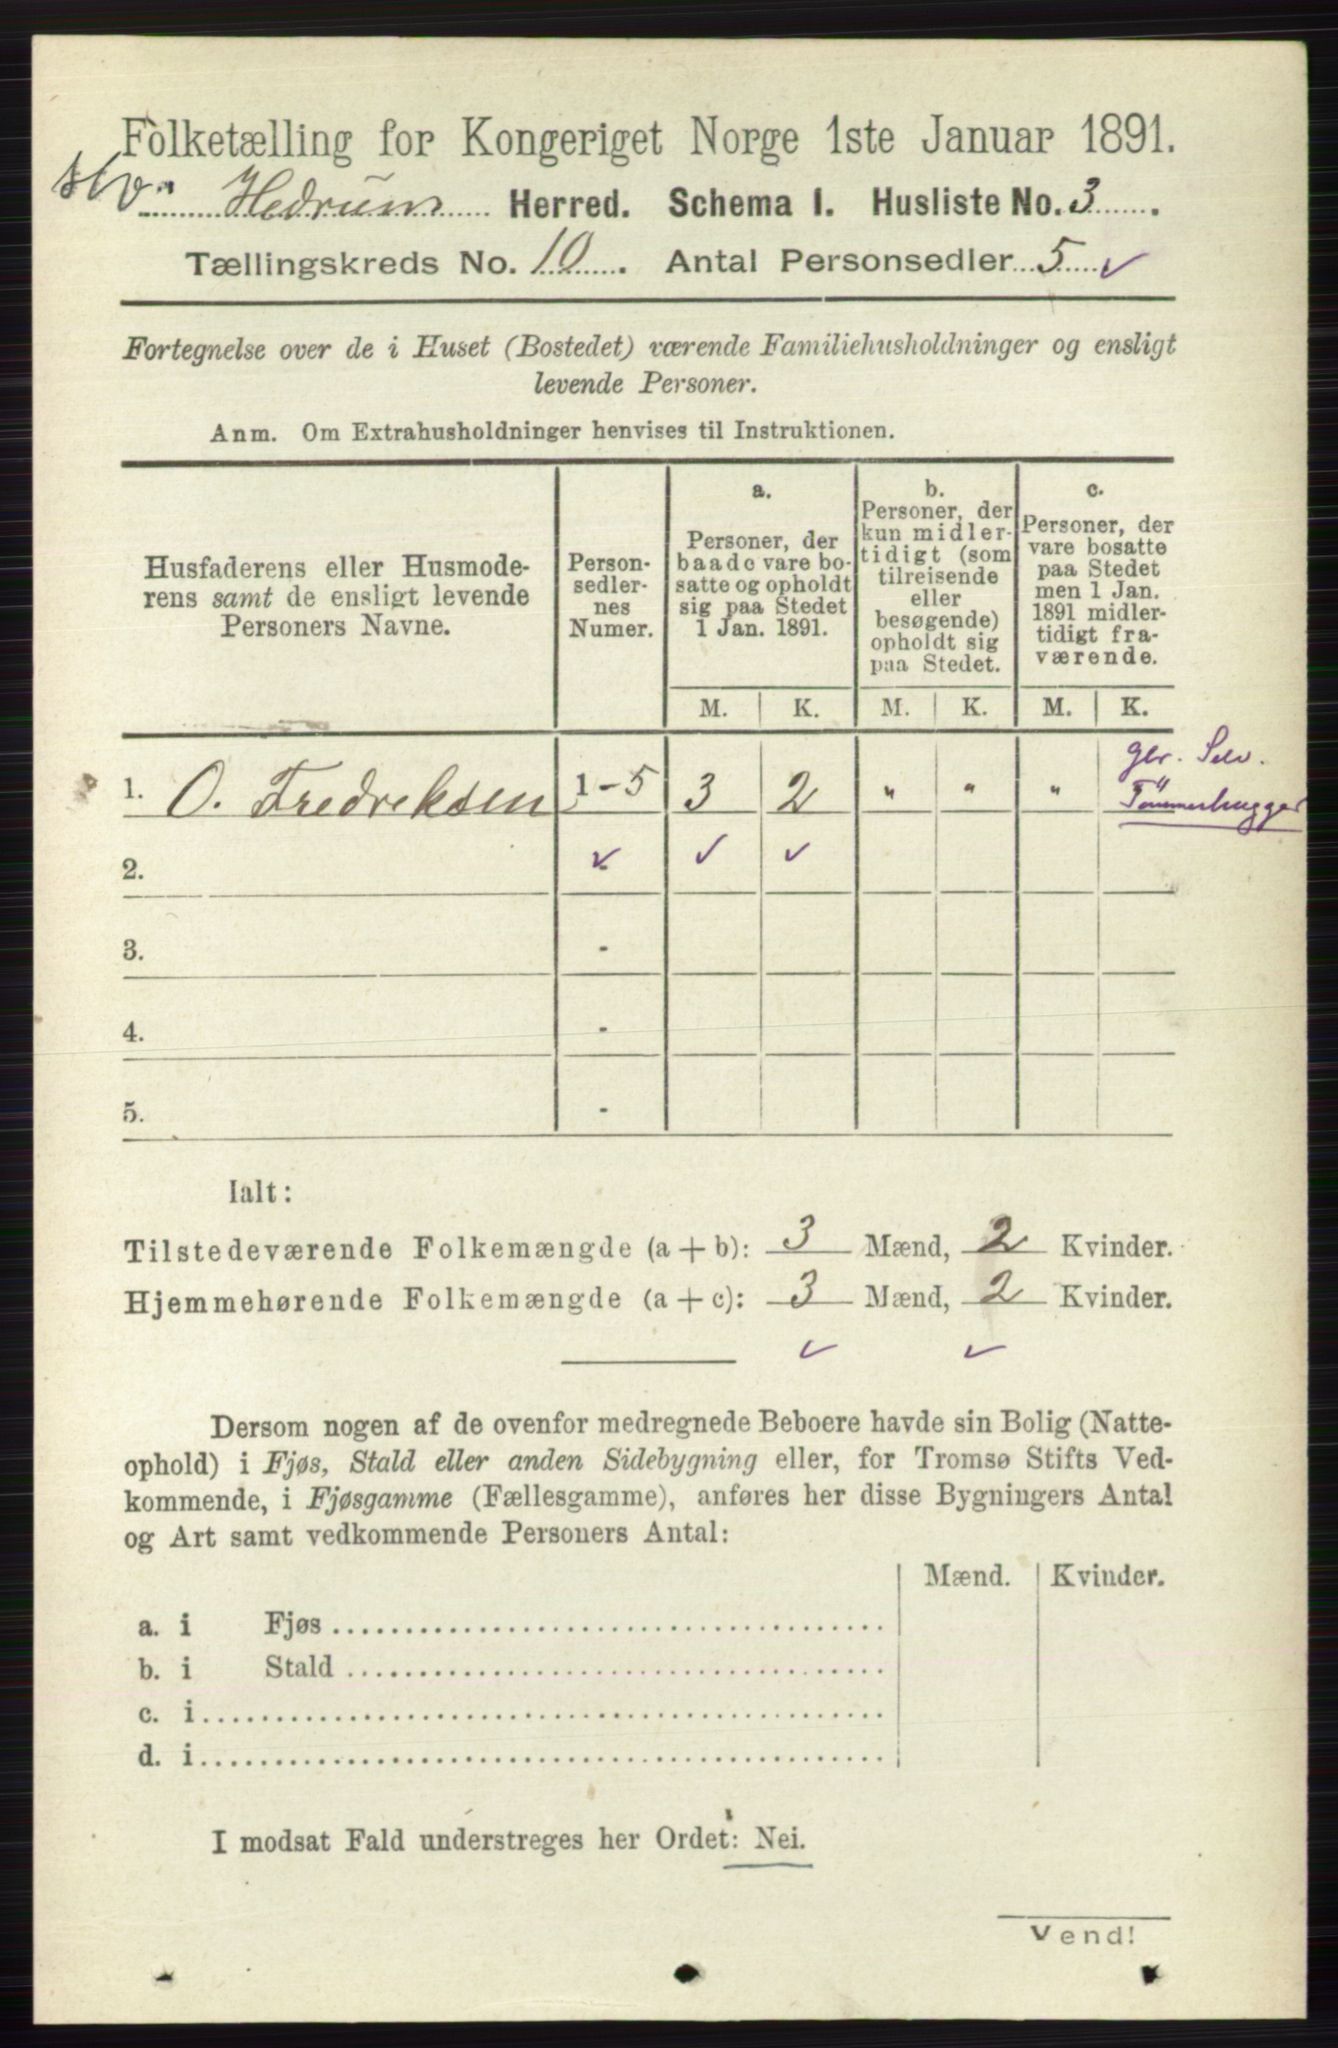 Folketælling for Kongeriget Norge 1ste Januar 1891.
Hedrum Herred. Schema I. Husliste No. 3.
Tællingskreds No. 10. Antal Personsedler 5 ✓
Fortegnelse over de i Huset (Bostedet) værende Familiehusholdninger og ensligt
levende Personer.
Anm. Om Extrahusholdninger henvises til Instruktionen.
Husfaderens eller Husmode-
rens samt de ensligt levende
Personers Navne.
Person-
sedler-
nes
Numer.
a.
Personer, der
baade vare bo-
satte og opholdt
sig paa Stedet
1 Jan. 1891.
b.
Personer, der
kun midler-
tidigt (som
tilreisende
eller
besøgende)
opholdt sig
paa Stedet.
c.
Personer, der
vare bosatte
paa Stedet
men 1 Jan.
1891 midler-
tidigt fra-
værende.
M. K. M. K. M. K.
1. O. Fredreksen 1-5 3 2 " " " "
Tømmerhugger
2. ✓ ✓ ✓
3. -
4. -
5. -
Ialt:
Tilstedeværende Folkemængde (a + b): 3 Mænd, 2 Kvinder.
Hjemmehørende Folkemængde (a + c): 3 Mænd, 2 Kvinder.
✓ ✓
Dersom nogen af de ovenfor medregnede Beboere havde sin Bolig (Natte-
ophold) i Fjøs, Stald eller anden Sidebygning eller, for Tromsø Stifts Ved-
kommende, i Fjøsgamme (Fællesgamme), anføres her disse Bygningers Antal
og Art samt vedkommende Personers Antal:
Mænd. Kvinder.
a. i Fjøs
b. i Stald
c. i
d. i
I modsat Fald understreges her Ordet: Nei.
Vend!